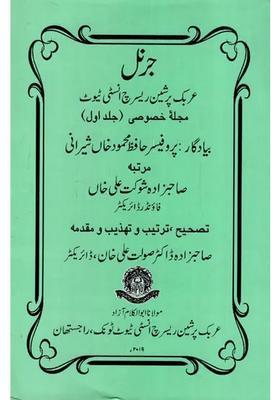 جرنل
عربک پرشین ریسرچ انسٹی ٹیوٹ
مجلۂ خصوصی (جلد اول)
بیادگار: پروفیسر حافظ محمود خاں شیرانی
مرتبہ
صاحبزادہ شوکت علی خاں
فاؤنڈر ڈائریکٹر
تصحیح، ترتیب و تہذیب و مقدمہ
صاحبزادہ ڈاکٹر صولت علی خان، ڈائریکٹر
مولانا ابوالکلام آزاد
عربک پرشین ریسرچ انسٹی ٹیوٹ ٹونک، راجستھان
۲۰۱۹ء